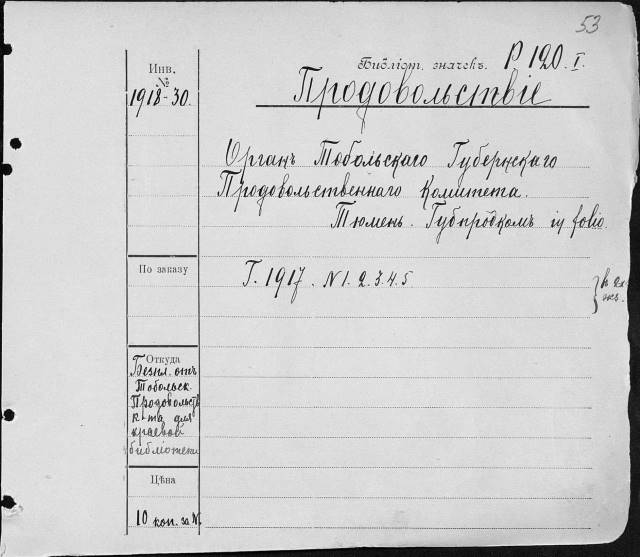 53
Библіот. значекъ. Р 120. I.
Инв.
№
1918-30.
Продовольствіе
Органъ Тобольскаго Губернскаго
Продовольственнаго Комитета.
Тюмень. Губпродкомъ in folio.
По заказу
Г. 1917. N 1. 2. 3. 4. 5
в 2х
экз.
Откуда
Безпл. отъ
Тобольск.
Продовольств
к-та для
краевой
библіотеки
Цѣна
10 коп. за №.